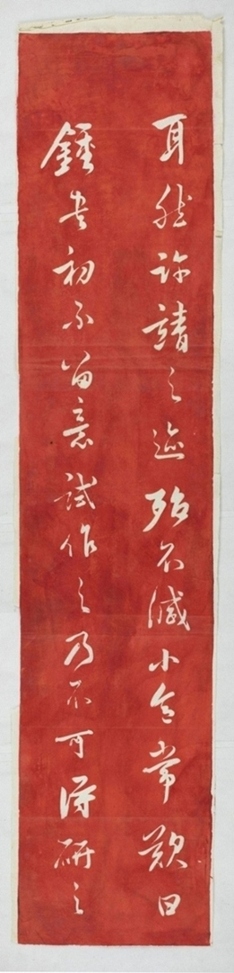 耳然許靖之迹殆不減小令常歎曰
鍾書初不留意試作之乃不可得研之